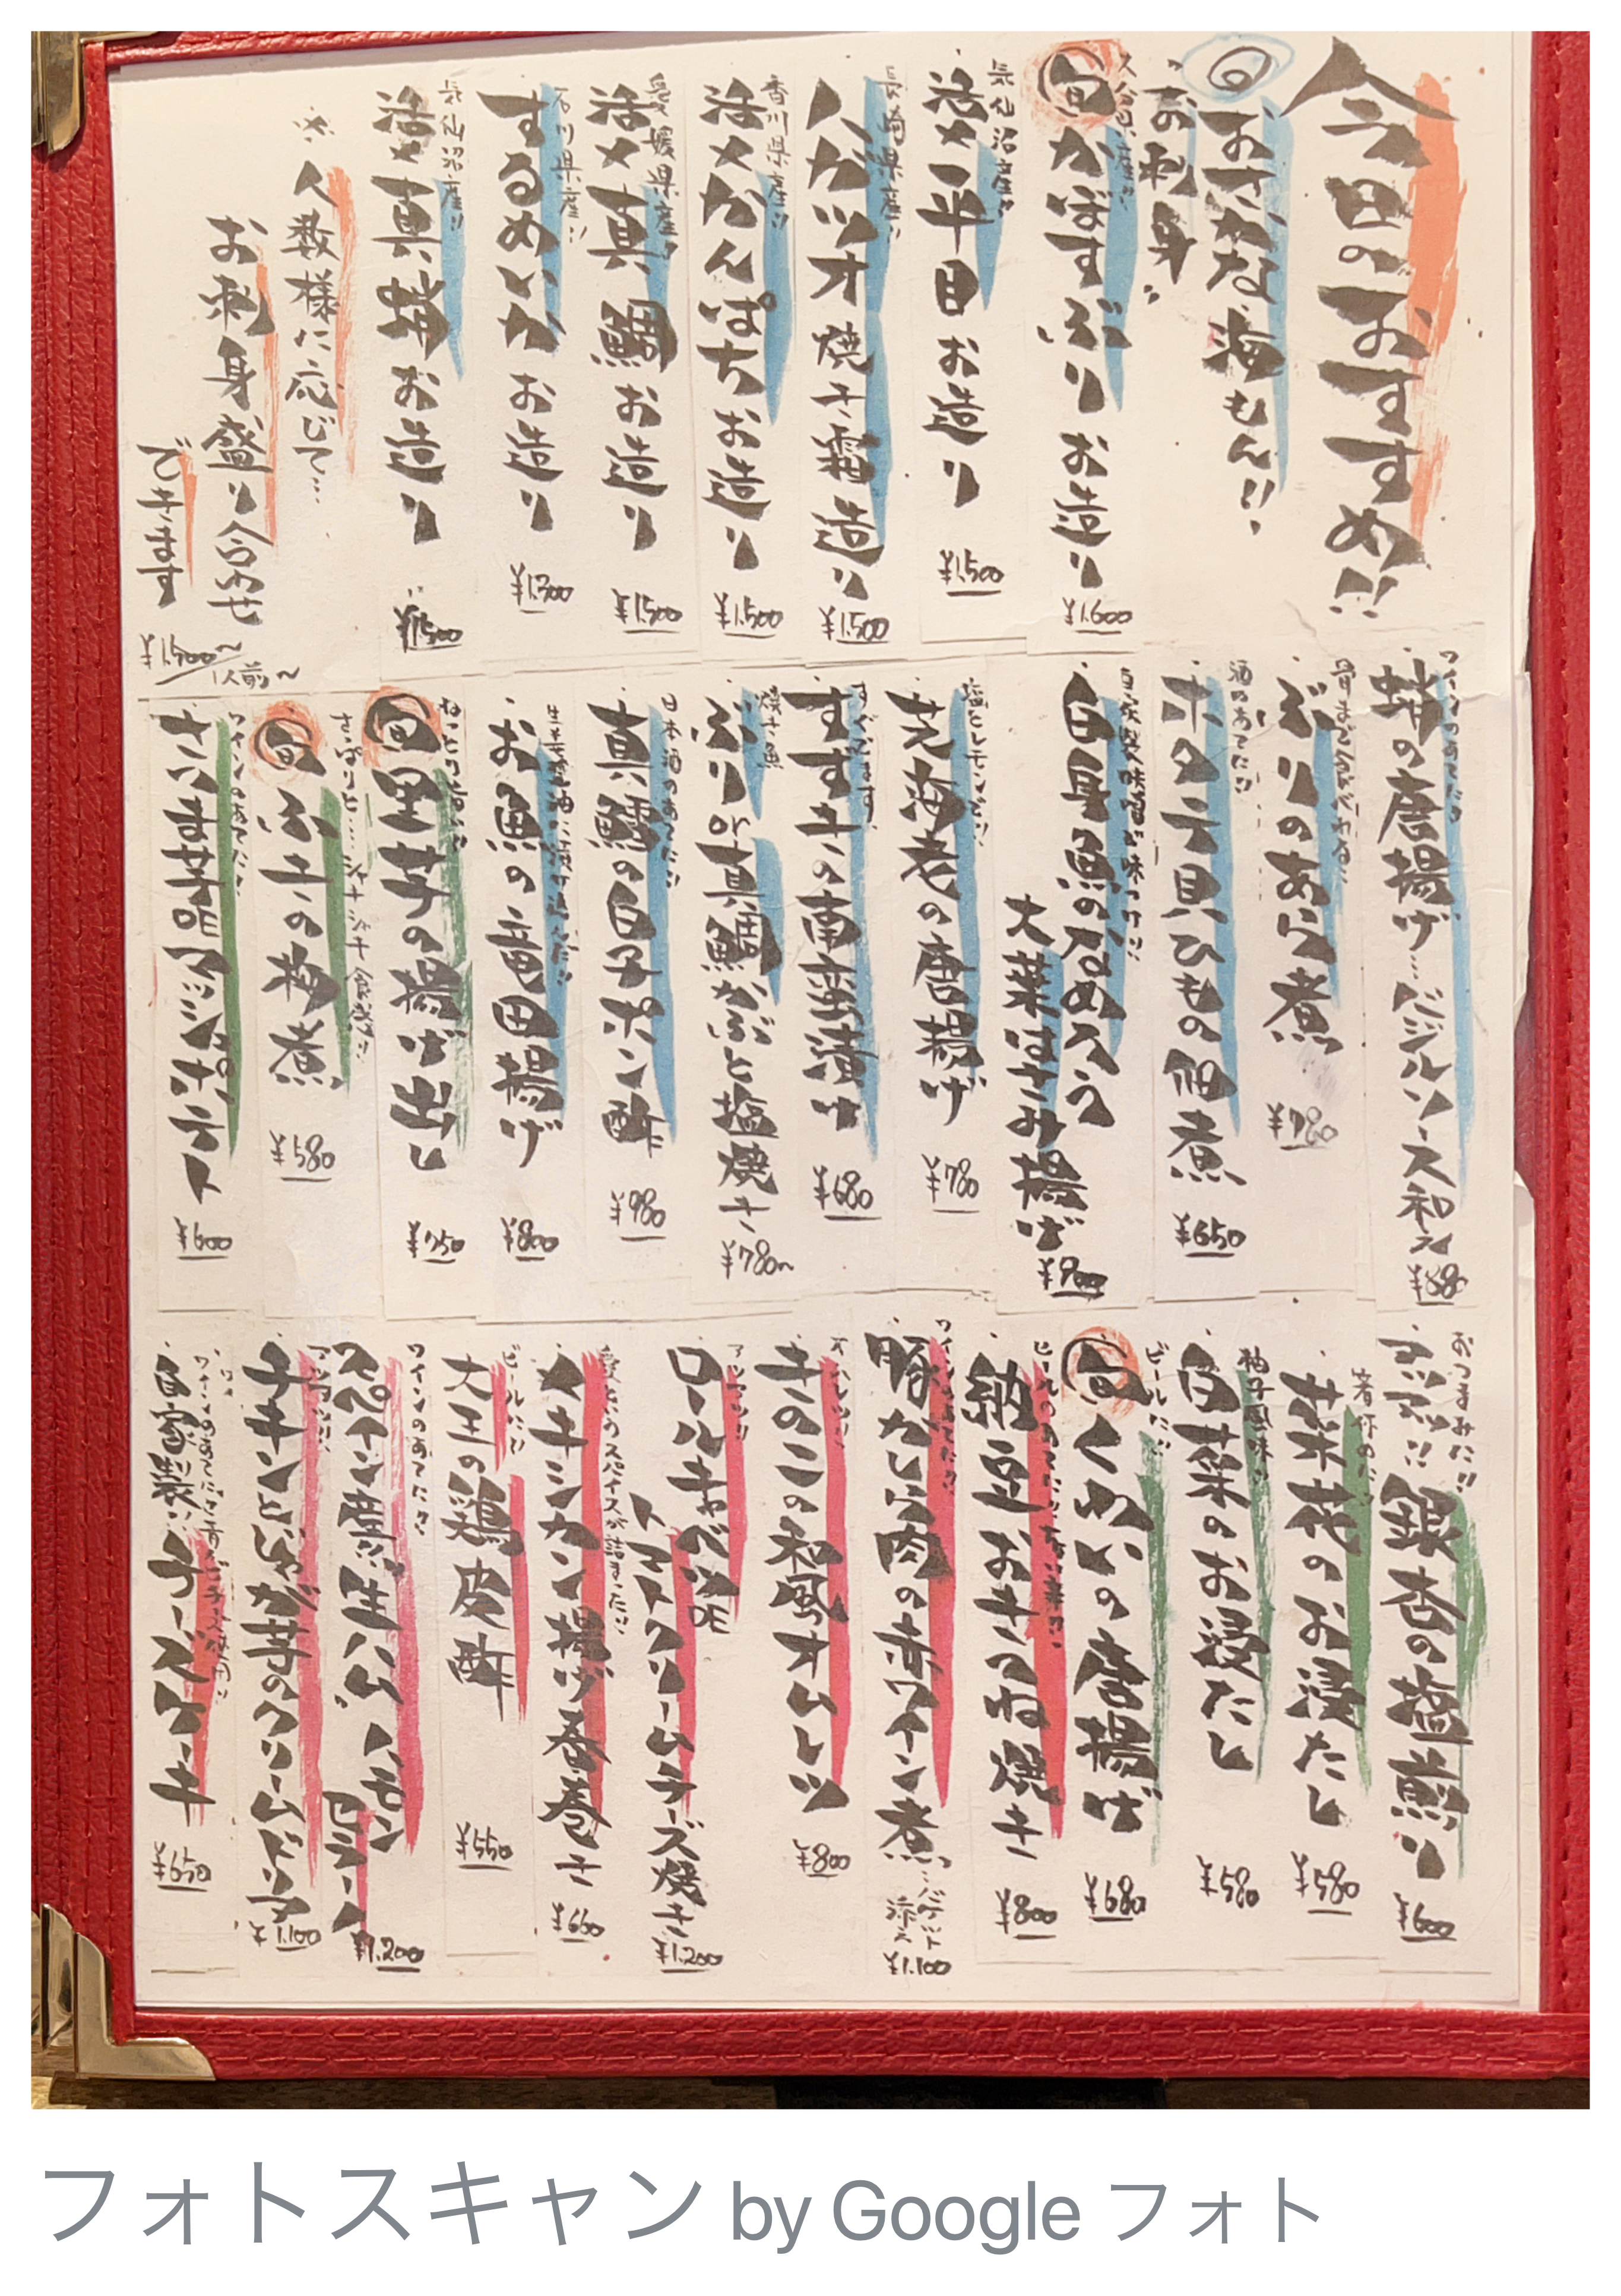 今日のおすすめ!!
おさかな海もん!!
お刺身
大分県産!!
旬 かぼすぶり お造り ¥1,600
気仙沼産!!
活〆平目 お造り ¥1,500
長崎県産!!
カツオ 焼き霜造り ¥1,500
香川県産!!
活〆かんぱち お造り ¥1,500
愛媛県産!!
活〆真鯛 お造り ¥1,500
石川県産!!
するめいか お造り ¥1,300
気仙沼産!!
活〆真蛸 お造り ¥1,500
※人数様に応じて…
お刺身盛り合わせ
できます
¥1,500〜
1人前〜
ワインのあてに!!
蛸の唐揚げ…バジルソース和え ¥880
骨まで食べれる!!
ぶりのあら煮 ¥780
酒のあてに!!
ホタテ貝ひもの佃煮 ¥650
白身魚のなめろう
大葉はさみ揚げ ¥900
塩とレモンで!!
芝海老の唐揚げ ¥780
すぐでます!
すずきの南蛮漬け ¥680
焼き魚
ぶりor真鯛かぶと塩焼き ¥780〜
日本酒のあてに!!
真鱈の白子ポン酢 ¥980
生姜醤油に漬け込んだ!!
お魚の竜田揚げ ¥800
ねっとり
旬 里芋の揚げ出し ¥750
さっぱり シャキシャキ食感!!
旬 ふきの物煮 ¥580
ワインのあてに!!
さつま芋DEマッシュポテト ¥600
おつまみに!!
銀杏の塩煎り ¥600
菜花のお浸たし ¥580
柚子風味!!
白菜のお浸たし ¥580
ビールに!!
旬 くわいの唐揚げ ¥680
納豆おきつね焼き ¥800
ワインのあてに!!
豚かしら肉の赤ワイン煮…バゲット
添え
¥1,100
オムレツ!!
きのこの和風オムレツ ¥800
アツアツ!!
ロールキャベツDE
トマトクリームチーズ焼き ¥1,200
スパイスが詰まった!!
メキシカン揚げ春巻き ¥660
ビールに!!
大王の鶏皮酢 ¥550
ワインのあてに!!
スペイン産生ハム ハモン
セラーノ ¥1,200
アツアツ!!
チキンとじゃが芋のクリームドリア ¥1,100
自家製!! チーズケーキ ¥650
フォトスキャン by Google フォト